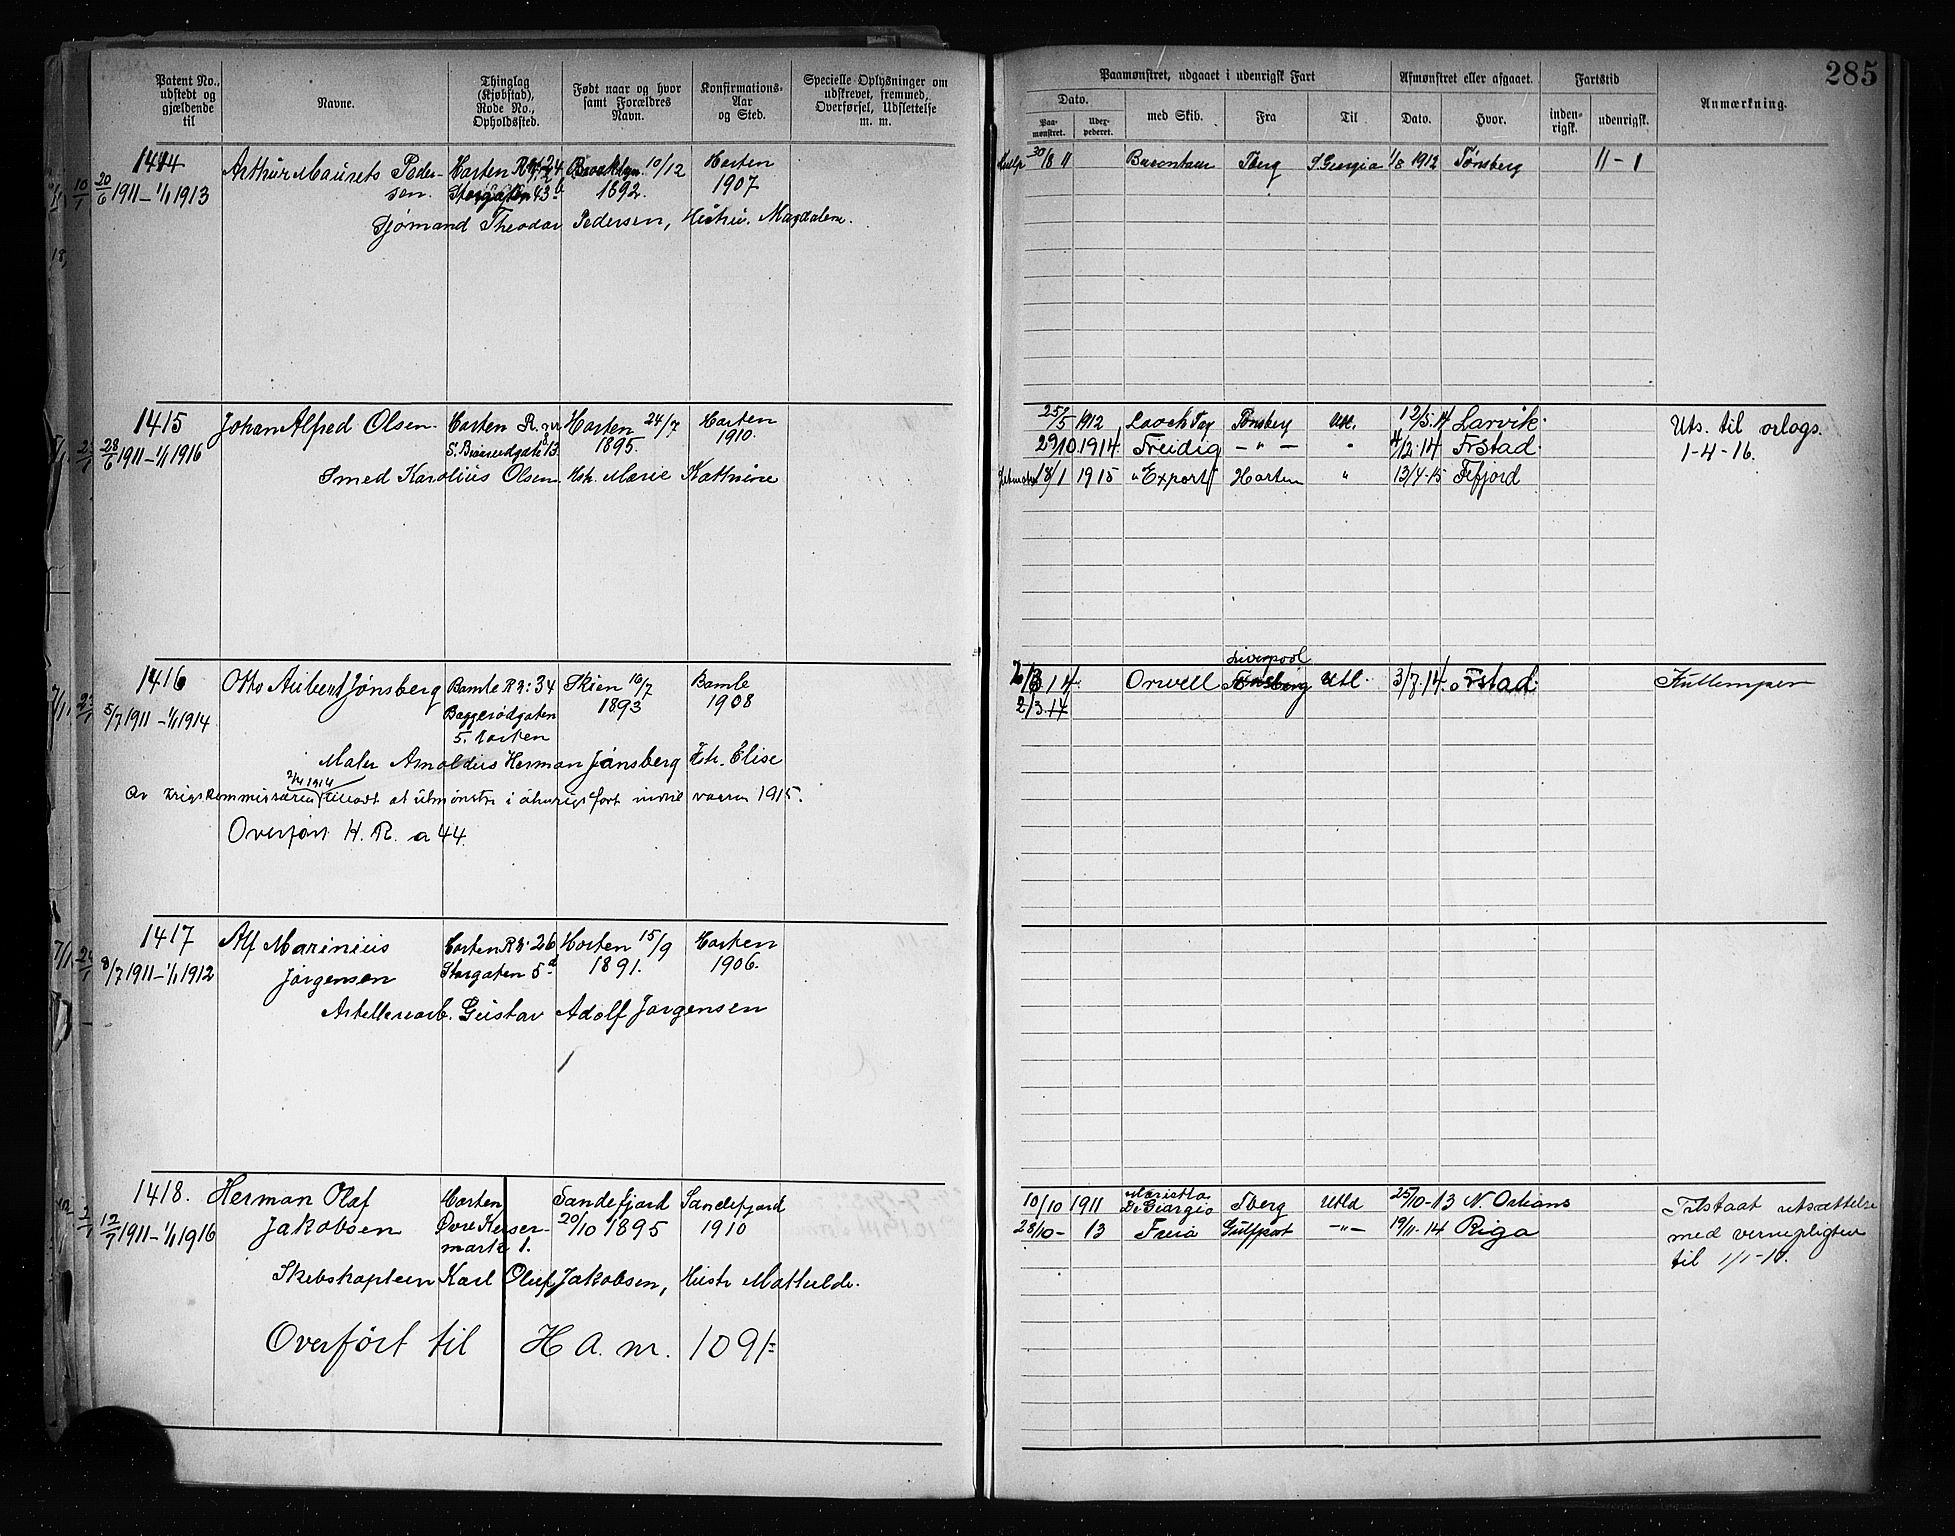 285
Patent No., udstedt og gjældende til
Navne.
Thinglag (Kjøbstad), Rode No., Opholdssted.
Født naar og hvor samt Forældres Navn.
Konfirmations-Aar og Sted.
Specielle Oplysninger om udskrevet, fremmed, Overførsel, Udslettelse m. m.
Paamønstret, udgaaet i udenrigsk Fart
Afmønstret eller afgaaet.
Fartstid
Anmærkning.
Dato.
med Skib.
Fra
Til
Dato.
Hvor.
inden-rigsk.
udenrigsk.
Paa-mønstret.
Udex-pederet.
1414
20/6 1911 – 1/1 1913
Arthur Mauritz Peder-
sen.
Horten R nr: 24
Storgaten 43 b
Brooklyn 10/12
1892.
Horten
1907
Sjømand Theodor Pedersen, Hustru. Magdalene.
30/8 11 Tberg S. Georgia 1/8 1912 Tønsberg 11 – 1
1415
28/6 1911 – 1/1 1916
Johan Alfred Olsen.
Horten R. nr
Horten 24/7
1895.
Horten
1910.
Smed Karolius Olsen Hstr. Marie Kathrine
25/5 1912 Tønsberg Utl. 12/5. 14 Larvik.
29/10. 1914. Freidig – " – " 4/12. 14 Frstad.
18/1 1915 " Export" Horten " 13/4-15 Tefjord
Uts. til orlogs.
1-4-16.
1416
5/7 1911 – 1/1 1914
Otto Aubert Jønsberg
Bamle R n: 34
Baggerødgaten
5. Horten
Skien 16/7
1893
Bamle
1908
Maler Arnoldus Herman Jønsberg Hstr. Elise
2/4 1914
Av krigskommissæren tilladt at utmønstre i utenrigsfart indtil vaaren 1915.
Overført H. R. a 44.
Liverpool
14. Orwell Tønsberg Utl. 3/7. 14. Frstad.
2/3. 14
1417
8/7 1911 – 1/1 1912
Alf Marinius
Jørgensen
Horten R n: 26
Storgaten 5 d
Horten 15/9
1891.
Horten
1906.
Gustav Adolf Jørgensen
1418.
12/7 1911 – 1/1 1916
Herman Olaf
Jakobsen
Horten
Øvre Keiser-
mark 1.
Sandefjord
20/10 1895
Sandefjord
1910
Skibskaptein Karl Oluf Jakobsen, Hustr Mathilde.
Overført til H A. nr. 109
10/10 1911 Di Giorgio Tberg Utld 25/10-13 N. Orleans
28/10 - 13 Freia Gulfport – " – 19/11-14 Riga
Tilstaat utsættelse
med vernepligten
til